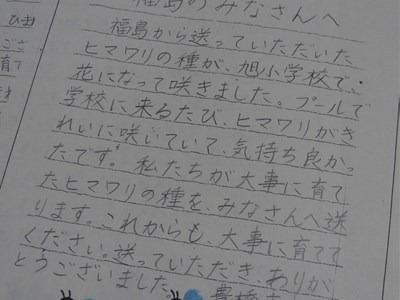 福島のみなさんへ
福島から送っていただいた
ヒマワリの種が、旭小学校で、
花になって咲きました。プールで
学校に来るたび、ヒマワリがき
れいに咲いていて、気持ち良かっ
たです。私たちが大事に育て
たヒマワリの種を、みなさんへ送
ります。これからも、大事に育てて
ください。送っていただき、ありが
とうございました。 豊橋市
ひま
育て